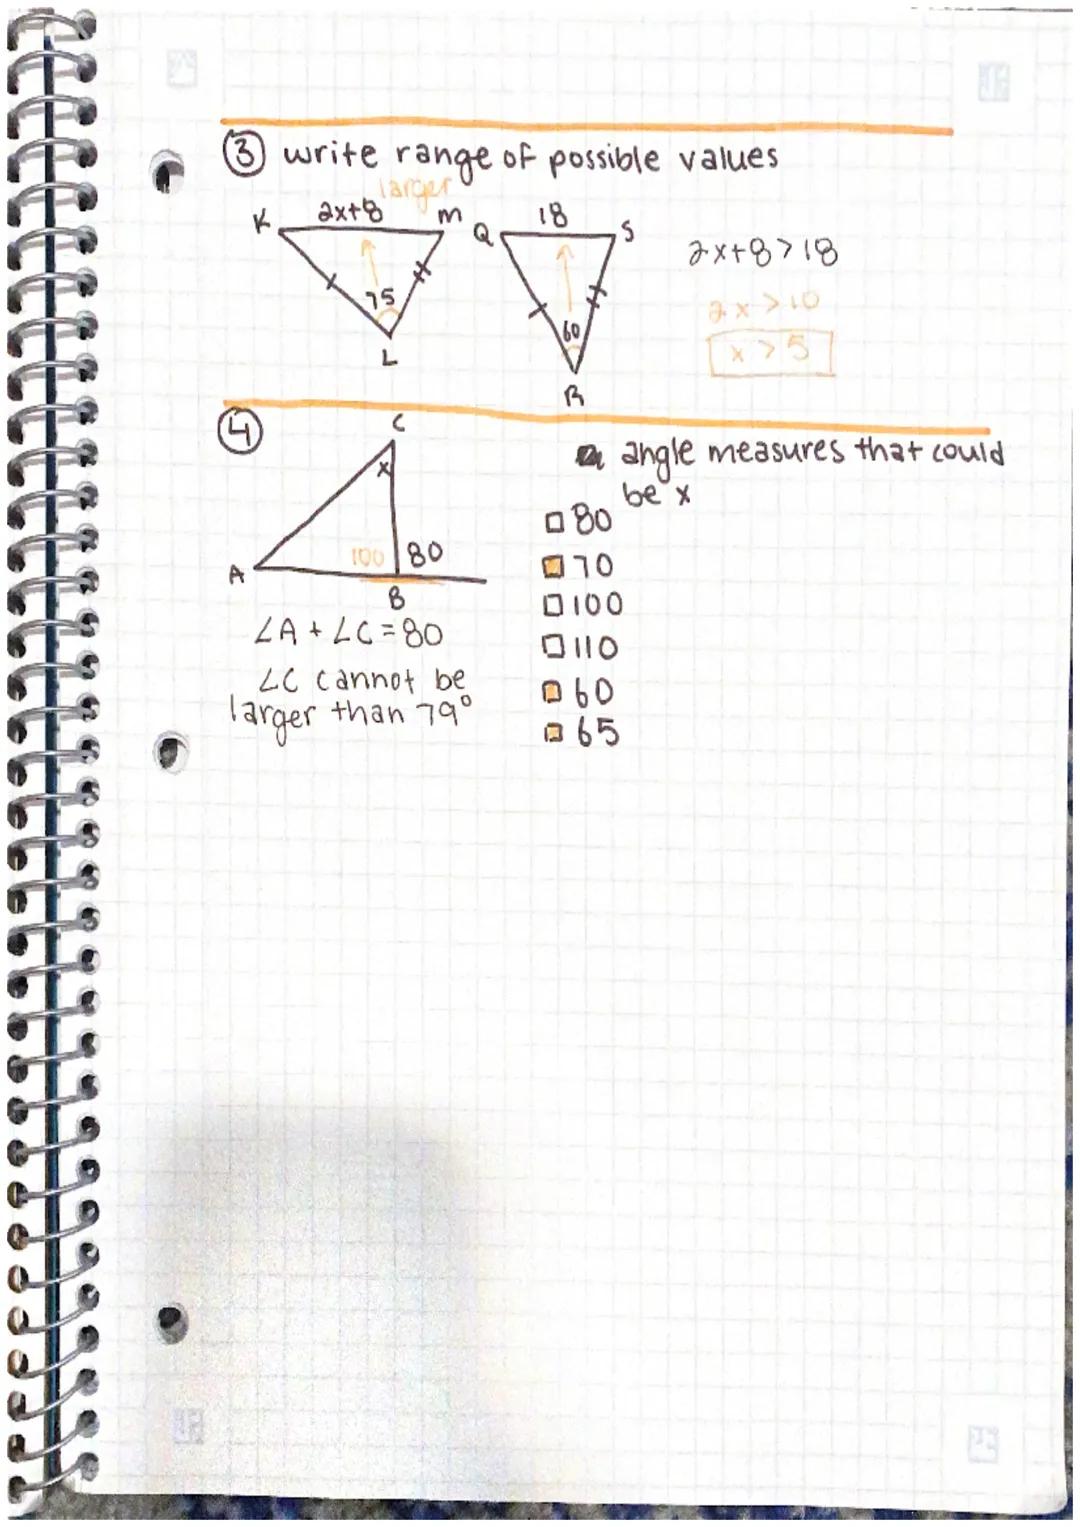 ③ write range of possible values
larger
K 2x+8 M Q 18 S
2x+8>18
75
2x>10
60
x>5
L
R
④
C
angle measures that could
be x
x
□ 80
100 80
□ 70
A
B
□ 100
∠A + ∠C = 80
□ 110
∠C cannot be
□ 60
larger than 79°
□ 65